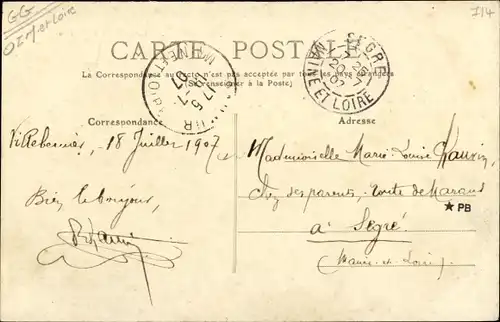 GG
114
CARTE POSTALE
La Correspondance au recto n'est pas acceptée par tous les pays étrangers
(Se renseigner à la Poste)
SEGRÉ
MAINE ET LOIRE
Correspondance
Adresse
18 Juillet 1907
Mademoiselle Marie Louise
chez ses parents, route de Marans
Bien le bonjour,
★ PB
à Segré
(Maine-et-Loire)